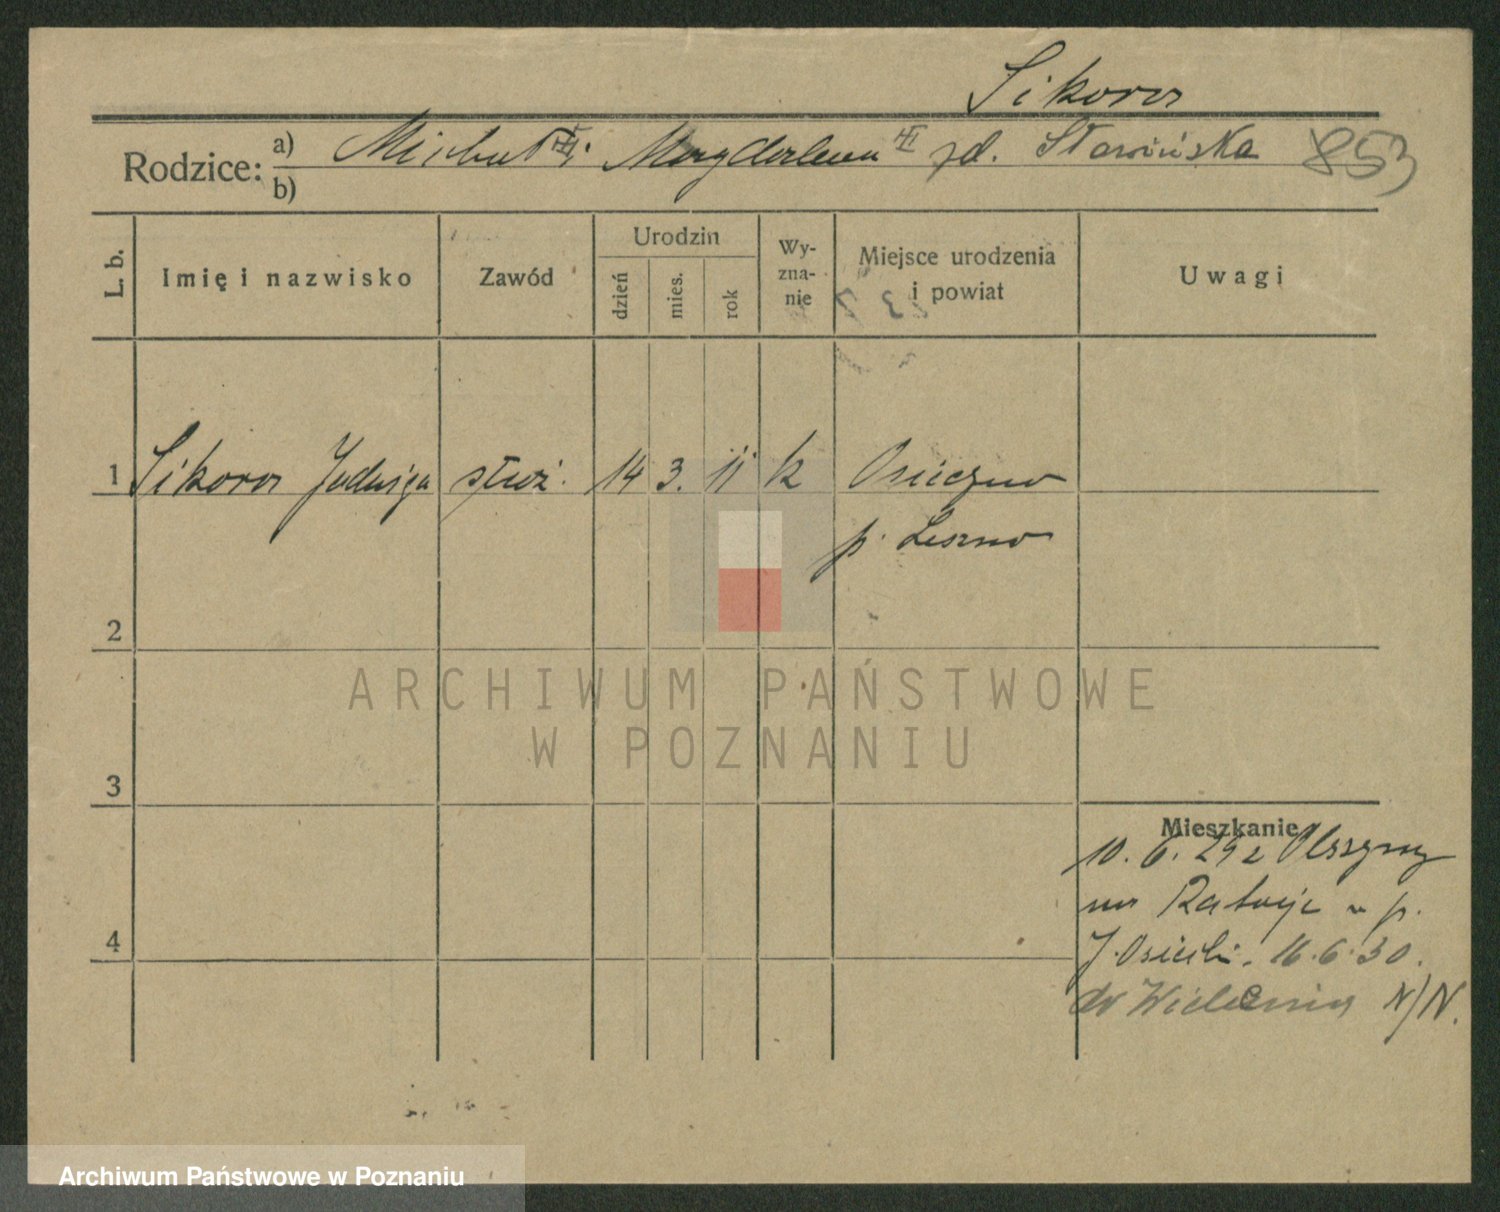 Sikora
Rodzice: a) Michał i Magdalena zd. Sławińska 853
b)
L. b. Imię i nazwisko Zawód Urodzin dzień mies. rok Wy-zna-nie Miejsce urodzenia i powiat Uwagi
1 Sikora Jadwiga służ. 14 3. 11 k Osieczna
p. Leszno
2
3
Mieszkanie
10. 6. 29 z Olszyny
na Rataje u p.
4
J. Osiecki. 16. 6. 30.
do Wielenia N/N.
ARCHIWUM PAŃSTWOWE
W POZNANIU
Archiwum Państwowe w Poznaniu